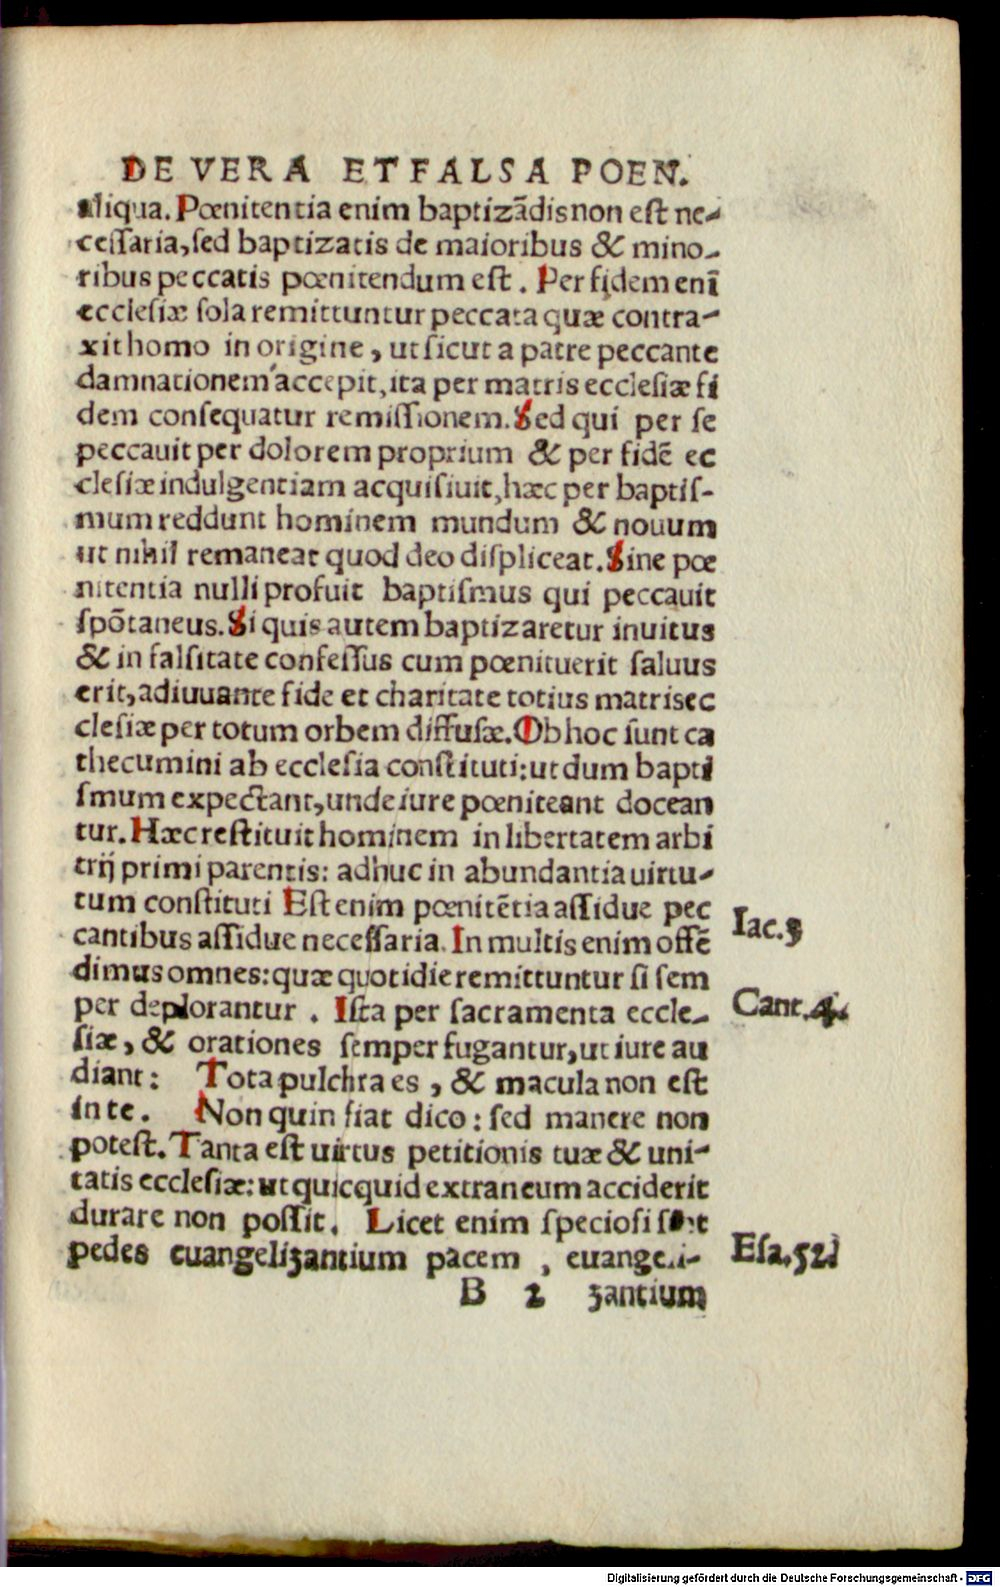 DE VERA ET FALSA POEN.
aliqua. Pœnitentia enim baptizādis non est ne-
cessaria, sed baptizatis de maioribus & mino-
ribus peccatis pœnitendum est. Per fidem enī
ecclesiæ sola remittuntur peccata quæ contra-
xit homo in origine, ut sicut a patre peccante
damnationem accepit, ita per matris ecclesiæ fi
dem consequatur remissionem. Sed qui per se
peccauit per dolorem proprium & per fidē ec
clesiæ indulgentiam acquisiuit, hæc per baptis-
mum reddunt hominem mundum & nouum
ut nihil remaneat quod deo displiceat. Sine pœ
nitentia nulli profuit baptismus qui peccauit
spōtaneus. Si quis autem baptizaretur inuitus
& in falsitate confessus cum pœnituerit saluus
erit, adiuuante fide et charitate totius matris ec
clesiæ per totum orbem diffusæ. Ob hoc sunt ca
thecumini ab ecclesia constituti: ut dum bapti
smum expectant, unde iure pœniteant docean
tur. Hæc restituit hominem in libertatem arbi
trij primi parentis: adhuc in abundantia uirtu-
tum constituti Est enim pœnitētia assidue pec
cantibus assidue necessaria. In multis enim offē
Iac. 3
dimus omnes: quæ quotidie remittuntur si sem
per deplorantur . Ista per sacramenta eccle-
Cant. 4.
siæ, & orationes semper fugantur, ut iure au
diant: Tota pulchra es, & macula non est
in te. Non quin fiat dico: sed manere non
potest. Tanta est uirtus petitionis tuæ & uni-
tatis ecclesiæ: ut quicquid extraneum acciderit
durare non possit. Licet enim speciosi sunt
pedes euangelizantium pacem , euangeli-
Esa. 52.
B 2 zantium
Digitalisierung gefördert durch die Deutsche Forschungsgemeinschaft - DFG